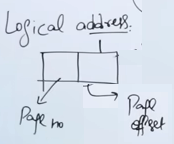 Logical address.
Page no
Page
offset